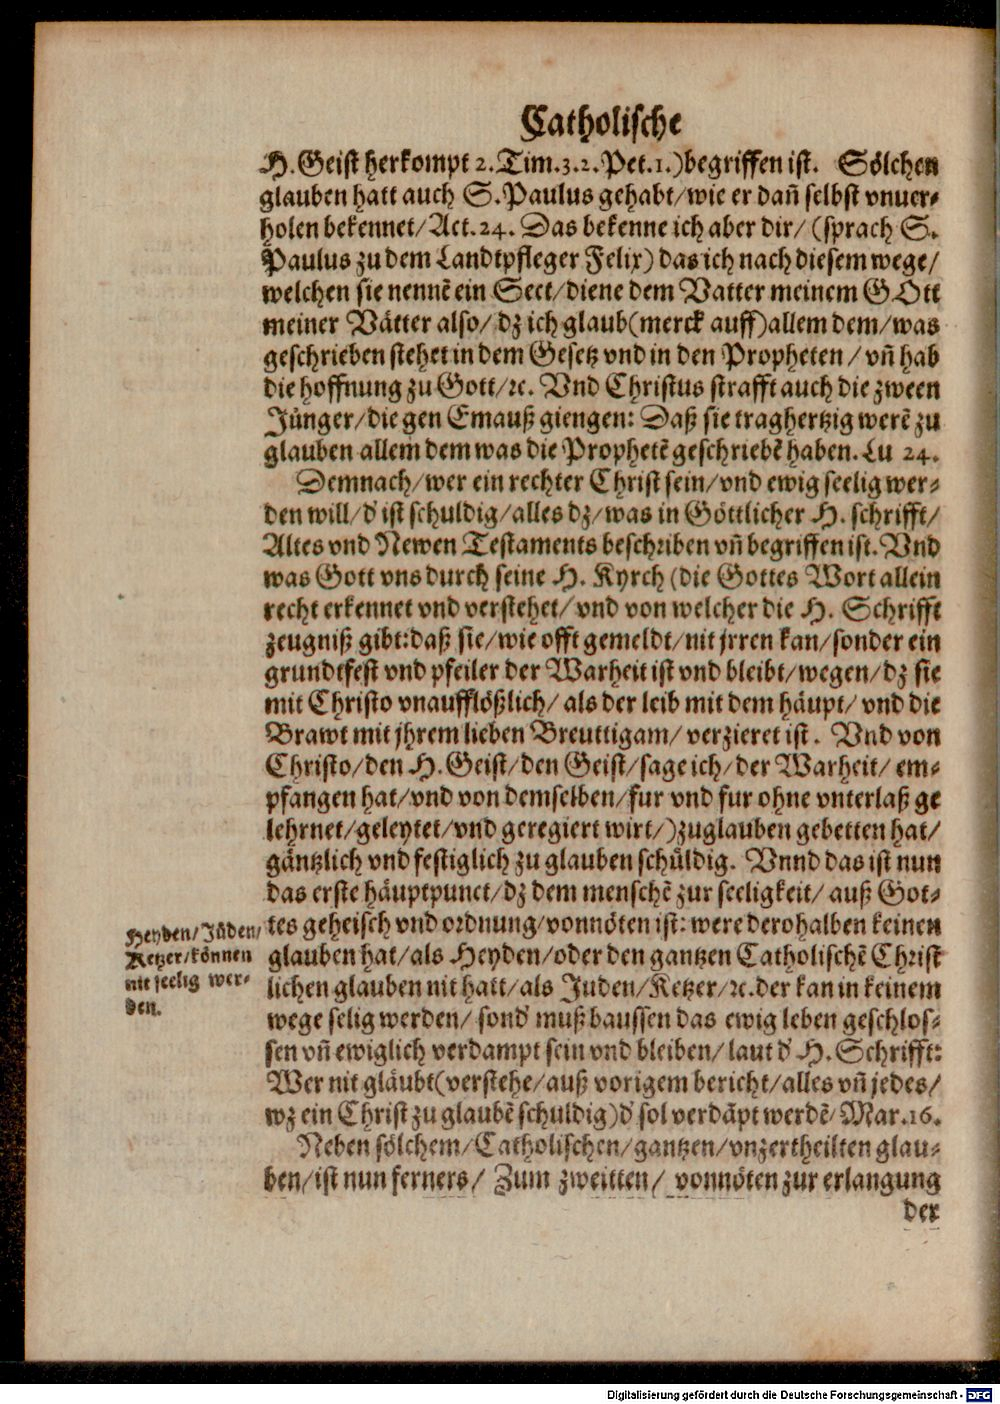 Catholische
H. Geist herkompt 2. Tim. 3. 2. Pet. 1.) begriffen ist. Sölchen
glauben hatt auch S. Paulus gehabt/ wie er dañ selbst vnuer-
holen bekennet/ Act. 24. Das bekenne ich aber dir/ (sprach S.
Paulus zu dem Landtpfleger Felix) das ich nach diesem wege/
welchen sie nennẽ ein Sect/ diene dem Vatter meinem GOtt
meiner Vätter also/ dz ich glaub (merck auff) allem dem/ was
geschrieben stehet in dem Gesetz vnd in den Propheten/ vñ hab
die hoffnung zu Gott/ ꝛc. Vnd Christus strafft auch die zween
Jünger/ die gen Emauß giengen: Daß sie traghertzig werẽ zu
glauben allem dem was die Prophetẽ geschriebẽ haben. Lu 24.
Demnach/ wer ein rechter Christ sein/ vnd ewig seelig wer-
den will/ d' ist schuldig/ alles dz/ was in Göttlicher H. schrifft/
Altes vnd Newen Testaments beschriben vñ begriffen ist. Vnd
was Gott vns durch seine H. Kyrch (die Gottes Wort allein
recht erkennet vnd verstehet/ vnd von welcher die H. Schrifft
zeugniß gibt: daß sie/ wie offt gemeldt/ nit jrren kan/ sonder ein
grundtfest vnd pfeiler der Warheit ist vnd bleibt/ wegen/ dz sie
mit Christo vnaufflößlich/ als der leib mit dem häupt/ vnd die
Brawt mit jhrem lieben Breuttigam/ verzieret ist. Vnd von
Christo/ den H. Geist/ den Geist/ sage ich/ der Warheit/ em-
pfangen hat/ vnd von demselben/ fur vnd fur ohne vnterlaß ge
lehrnet/ geleytet/ vnd geregiert wirt/) zuglauben gebetten hat/
gäntzlich vnd festiglich zu glauben schüldig. Vnnd das ist nun
das erste häuptpunct/ dz dem menschẽ zur seeligkeit/ auß Got-
tes geheisch vnd ordnung/ vonnöten ist: were derohalben keinen
glauben hat/ als Heyden/ oder den gantzen Catholischẽ Christ
lichen glauben nit hatt/ als Juden/ Ketzer/ ꝛc. der kan in keinem
wege selig werden/ sond' muß baussen das ewig leben geschlos-
sen vñ ewiglich verdampt sein vnd bleiben/ laut d' H. Schrifft:
Wer nit gläubt (verstehe/ auß vorigem bericht/ alles vñ jedes/
wz ein Christ zu glaubẽ schuldig) d' sol verdãpt werdẽ/ Mar. 16.
Heyden/ Jüden/
Ketzer/ können
nit seelig wer-
den.
Neben sölchem/ Catholischen/ gantzen/ vnzertheilten glau-
ben/ ist nun ferners/ Zum zweitten/ vonnöten zur erlangung
der
Digitalisierung gefördert durch die Deutsche Forschungsgemeinschaft - DFG